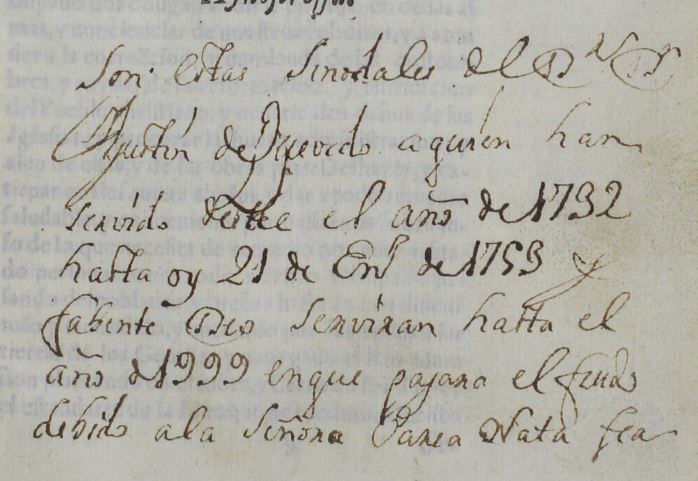 Son estas Sinodales del D.n D.r
Agustin de Quevedo a quien han
servido desde el año de 1732
hasta oy 21 de En.o de 1753 y
fabente Deo serviran hasta el
año de 1999 en que pagara el feudo
debido a la Señora Parca Nata fea